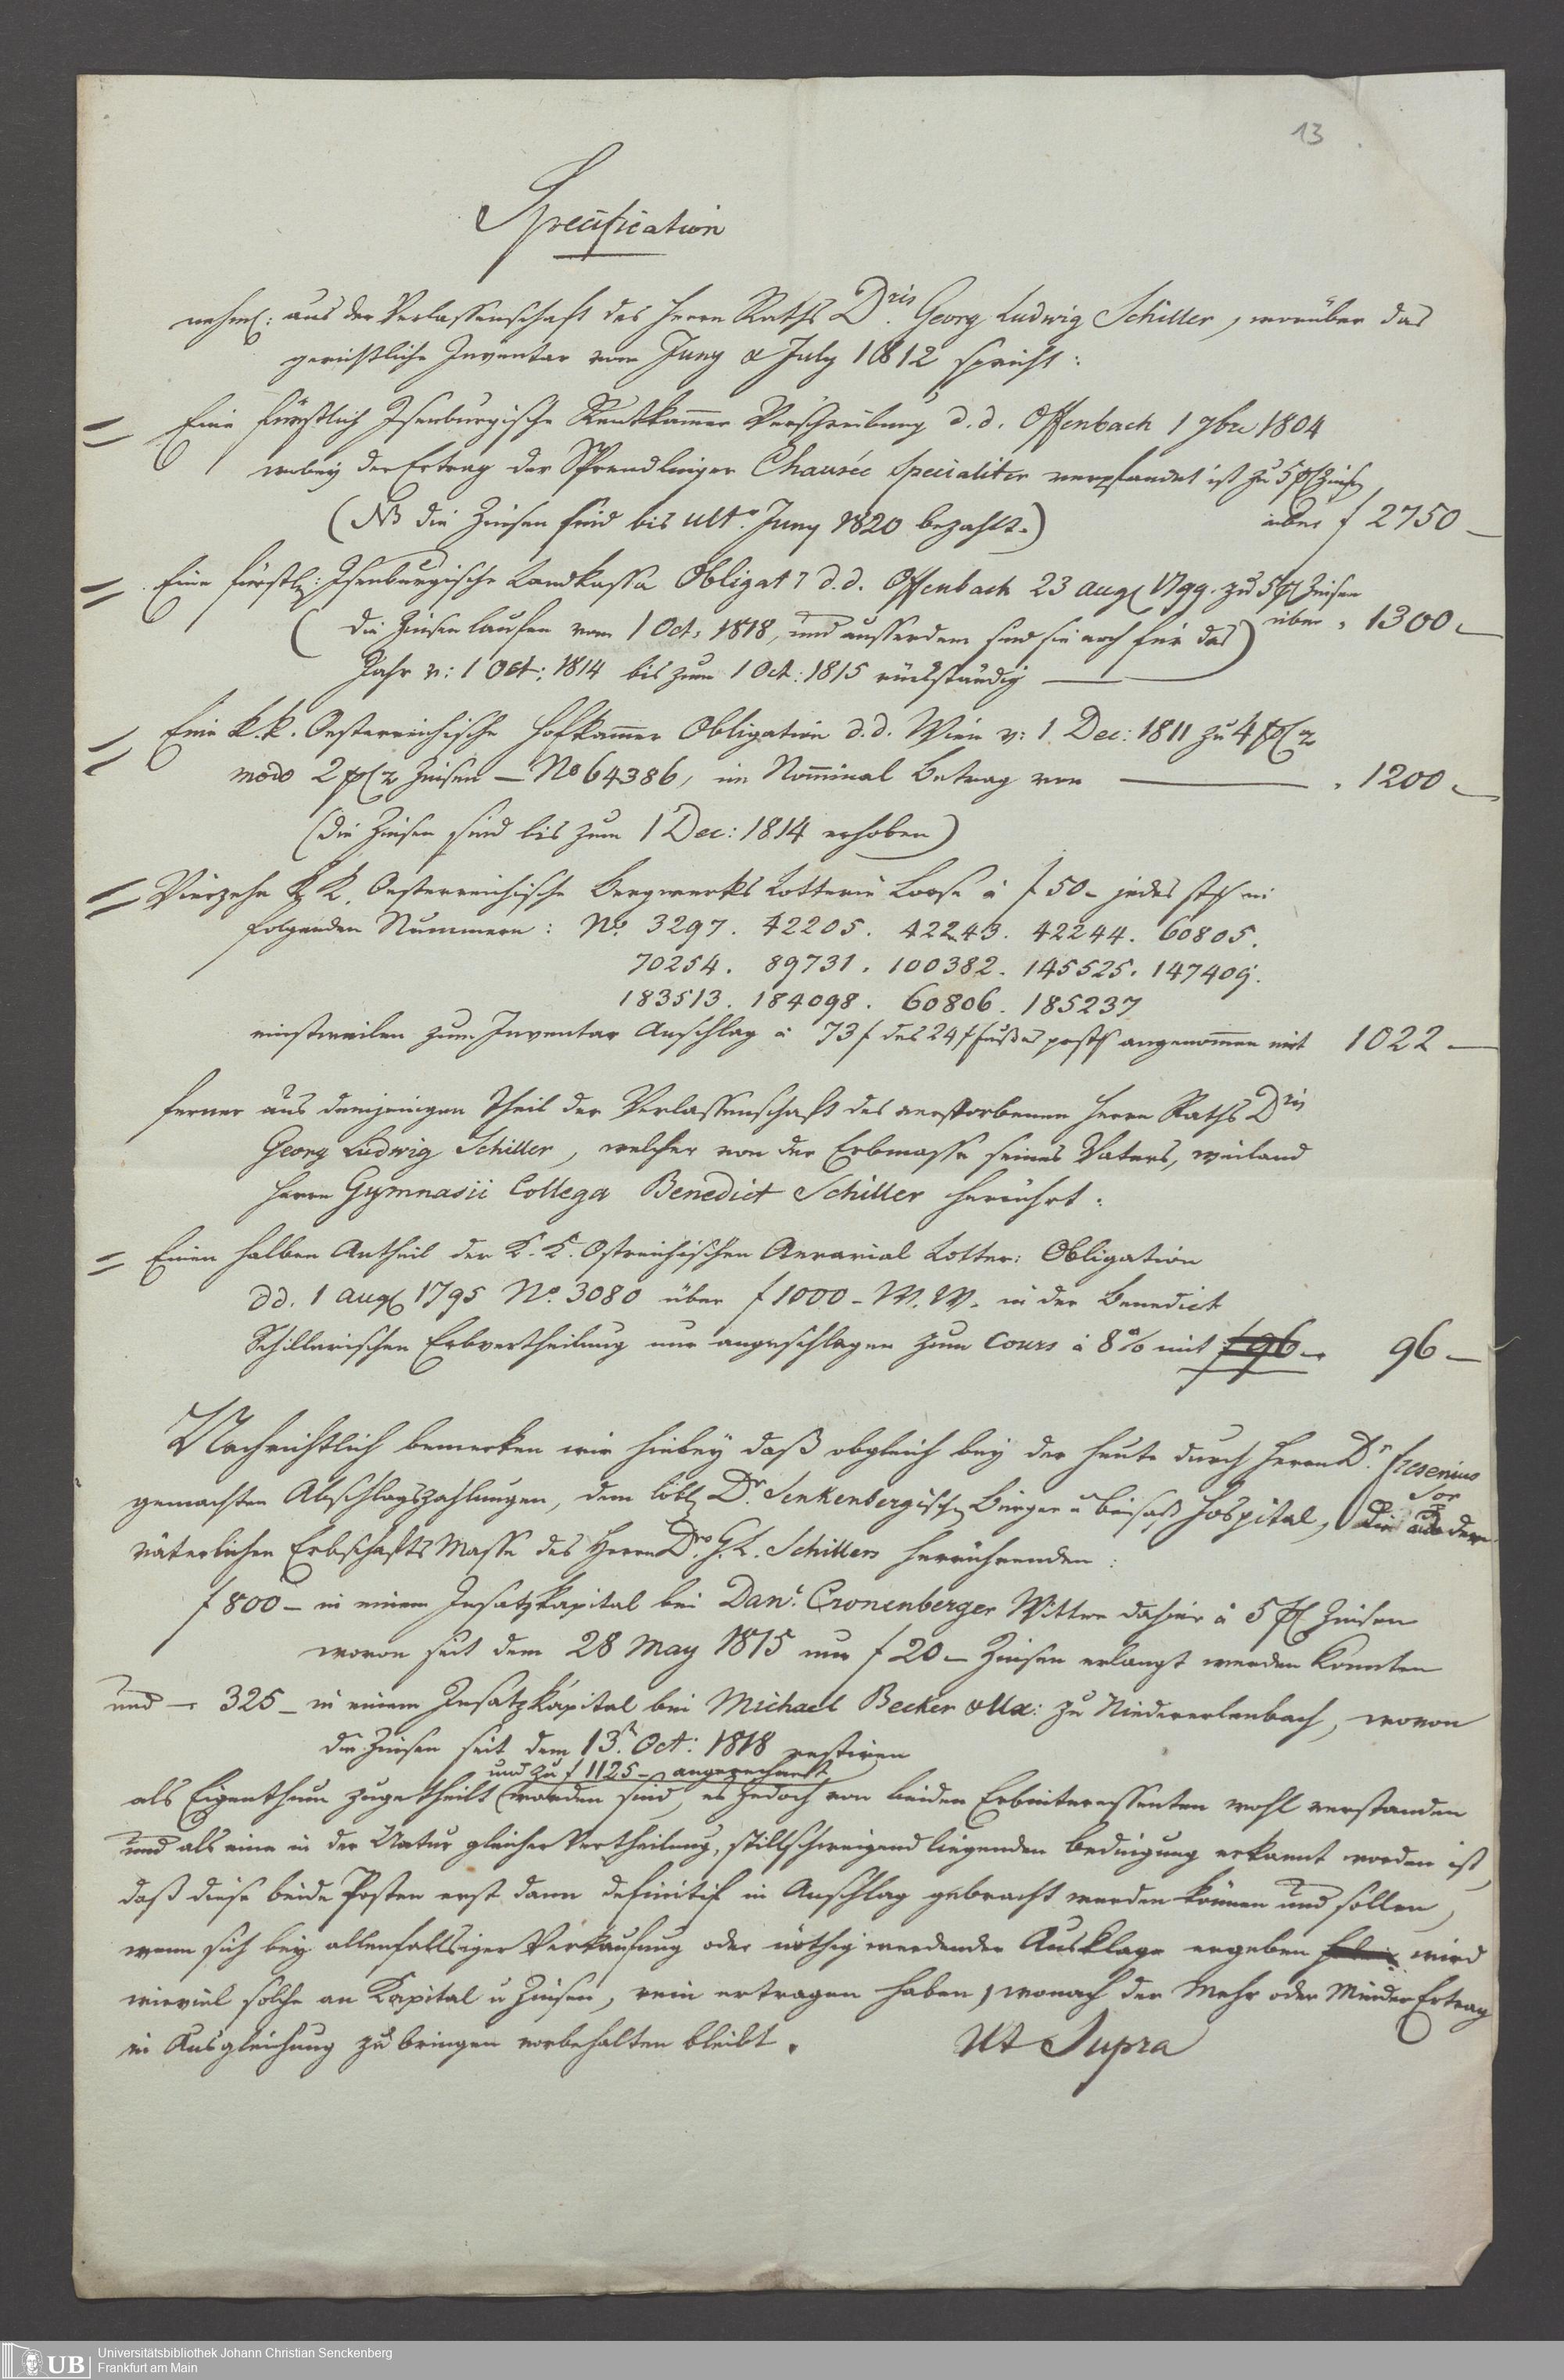 13
Specification
nehml: aus der Verlassenschaft des Herrn Raths D.ris Georg Ludwig Schiller, worüber das
gerichtliche Inventar vom Juny & July 1812 spricht:
Eine fürstlich Isenburgische Rentkammer Verschreibung d.d. Offenbach 1 7bre 1804
wobey der Ertrag der Sprendlinger Chausée specialiter verpfandet ist zu 5 pC Zinsen
über f 2750 —
(NB die Zinsen sind bis ulto. Juny 1820 bezahlt.)
Eine fürstl: Isenburgische Landkassa Obligat. d.d. Offenbach 23 Aug 1799. zu 5 pC Zinsen
über " 1300 —
(die Zinsen laufen vom 1 Oct. 1818, und ausserdem sind sie noch für das
Jahr v: 1 Oct: 1814 bis zum 1 Oct: 1815 rückständig)
Eine k.k. Oesterreichische Hofkammer Obligation d.d. Wien v: 1 Dec: 1811 zu 4 pC
modo 2 pC Zinsen — No 64386, im Nominal Betrag von — " 1200 —
(die Zinsen sind bis zum 1 Dec: 1814 erhoben)
Vierzehn k.k. Oesterreichische Bergwerks Lotterie Loose à f 50 – jedes in
folgenden Nummern: No. 3297. 42205. 42243. 42244. 60805.
70254. 89731. 100382. 145525. 147409.
183513. 184098. 60806. 185237
einstweilen zum Inventar Anschlag à 73 f des 24 f fußes angenommen mit 1022 —
ferner aus demjenigen Theil der Verlassenschaft des verstorbenen Herrn Raths Dris
Georg Ludwig Schiller, welcher von der Erbmasse seines Vaters, weiland
Herrn Gymnasii Collega Benedict Schiller herrührt:
Einen halben Antheil der K. K. Ostreichischen Aerarial Lotter: Obligation
dd. 1 Aug 1795 No. 3080 über f 1000 – W. W. in der Benedict
Schillerischen Erbvertheilung nur angeschlagen zum Cours à 8 % mit f 96 — 96 —
Nachrichtlich bemerken wir hiebey daß obgleich bey der heute durch Herrn Dr. Fresenius
gemachten Abschlagszahlungen, dem löbl Dr. Senkenbergischen Bürger u Beisaß Hospital, die aus der
väterlichen Erbschafts Masse des Herrn Dris. G. L. Schillers herrührenden:
f 800 – in einem Insatzkapital bei Danl. Cronenberger Wittwe dahier à 5 pC Zinsen
wovon seit dem 28 May 1815 nur f 20 – Zinsen erlangt werden konnten
und — 325 – in einem Insatzkapital bei Michael Becker & Ux: zu Niedererlenbach, wovon
die Zinsen seit dem 13t. Oct: 1818 restiren
und zu f 1125 – angerechnet
als Eigenthum zugetheilt worden sind, es jedoch von beiden Erbinteressenten wohl verstanden
und als eine in der Natur gleicher Vertheilung, stillschweigend liegenden Bedingung erkannt worden ist,
daß diese beide Posten erst dann definitif in Anschlag gebracht werden können und sollen,
wann sich bey allenfallsiger Verkaufung oder nöthig werdender Ausklage ergeben wird
wieviel solche an Kapital u Zinsen, rein ertragen haben, wonach der Mehr oder Minder Ertrag
in Ausgleichung zu bringen vorbehalten bleibt. Ut Supra
UB
Universitätsbibliothek Johann Christian Senckenberg
Frankfurt am Main